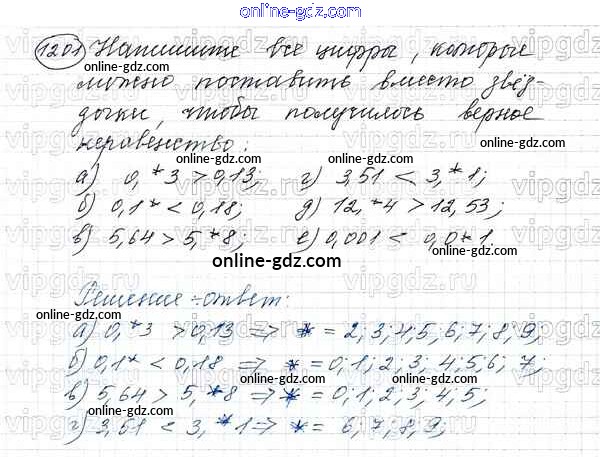 online-gdz.com
1201 Напишите все цифры, которые
можно поставить вместо звёз-
дочки, чтобы получилось верное
неравенство:
online-gdz.com
а) 0,*3 > 0,13; г) 3,51 < 3,*1;
б) 0,1* < 0,18; д) 12,*4 > 12,53;
в) 5,64 > 5,*8; е) 0,001 < 0,0*1.
online-gdz.com
Решение - ответ:
а) 0,*3 > 0,13 => * = 2; 3; 4; 5; 6; 7; 8; 9;
б) 0,1* < 0,18 => * = 0; 1; 2; 3; 4; 5; 6; 7;
в) 5,64 > 5,*8 => * = 0; 1; 2; 3; 4; 5;
г) 3,51 < 3,*1 => * = 6, 7, 8, 9;
online-gdz.com